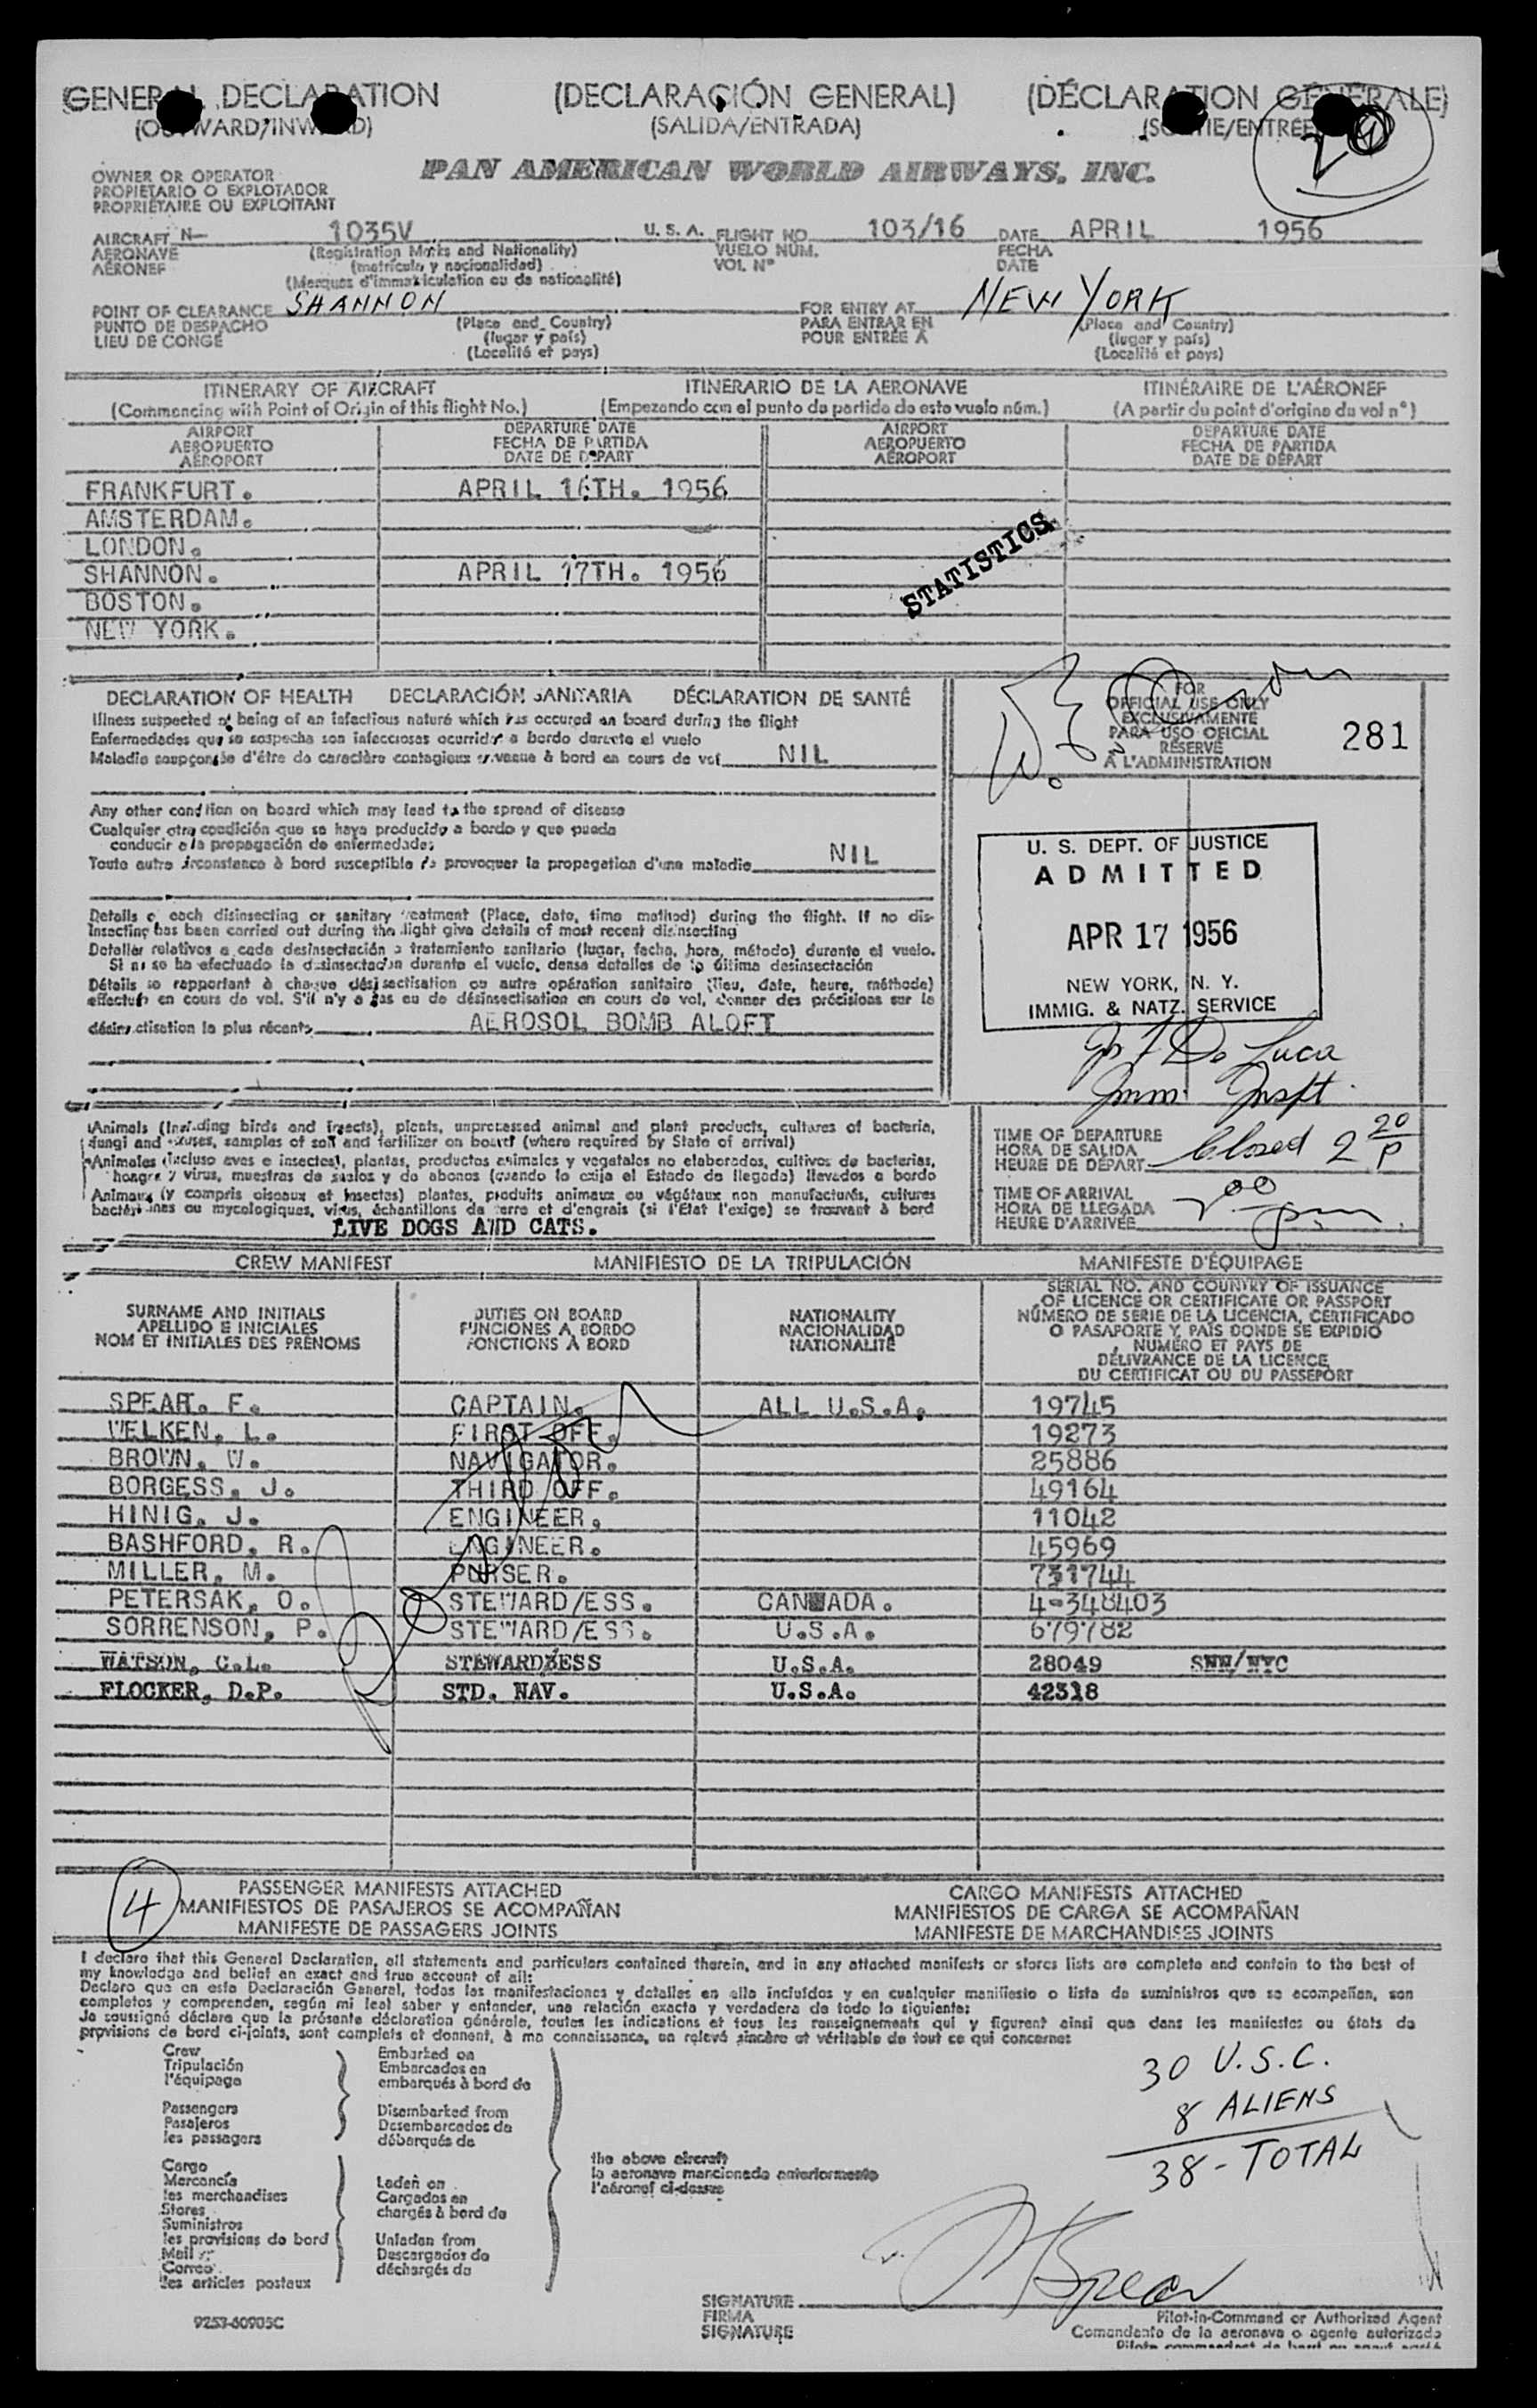 (GENERAL DECLARATION (DECLARACIÓN GENERAL) (DÉCLARATION GÉNÉRALE)
(OUTWARD/INWARD) (SALIDA/ENTRADA) (SORTIE/ENTRÉE)
OWNER OR OPERATOR PAN AMERICAN WORLD AIRWAYS, INC.
PROPIETARIO O EXPLOTADOR
PROPRIÉTAIRE OU EXPLOITANT
AIRCRAFT N- 1035V U. S. A. FLIGHT NO. 103/16 DATE APRIL 1956
AERONAVE (Registration Marks and Nationality) VUELO NÚM. FECHA
AÉRONEF (matrícula y nacionalidad) VOL Nº DATE
(Marques d'immatriculation ou de nationalité)
POINT OF CLEARANCE SHANNON FOR ENTRY AT NEW YORK
PUNTO DE DESPACHO (Place and Country) PARA ENTRAR EN (Place and Country)
LIEU DE CONGÉ (lugar y país) POUR ENTRÉE À (lugar y país)
(Localité et pays) (Localité et pays)
ITINERARY OF AIRCRAFT ITINERARIO DE LA AERONAVE ITINÉRAIRE DE L'AÉRONEF
(Commencing with Point of Origin of this flight No.) (Empezando con el punto de partida de este vuelo núm.) (A partir du point d'origine du vol n°)
AIRPORT DEPARTURE DATE AIRPORT DEPARTURE DATE
AEROPUERTO FECHA DE PARTIDA AEROPUERTO FECHA DE PARTIDA
AÉROPORT DATE DE DÉPART AÉROPORT DATE DE DÉPART
FRANKFURT. APRIL 16TH. 1956
AMSTERDAM.
LONDON.
SHANNON. APRIL 17TH. 1956
BOSTON.
NEW YORK.
STATISTICS
DECLARATION OF HEALTH DECLARACIÓN SANITARIA DÉCLARATION DE SANTÉ
Illness suspected of being of an infectious nature which has occured on board during the flight
Enfermedades que se sospecha son infecciosas ocurridas a bordo durante el vuelo
Maladie soupçonnée d'être de caractère contagieux survenue à bord en cours de vol NIL
Any other condition on board which may lead to the spread of disease
Cualquier otra condición que se haya producido a bordo y que pueda
conducir a la propagación de enfermedades
Toute autre circonstance à bord susceptible de provoquer la propagation d'une maladie NIL
Details of each disinsecting or sanitary treatment (Place, date, time method) during the flight. If no dis-
insecting has been carried out during the flight give details of most recent disinsecting
Detalles relativos a cada desinsectación o tratamiento sanitario (lugar, fecha, hora, método) durante el vuelo.
Si no se ha efectuado la desinsectación durante el vuelo, dense detalles de la última desinsectación
Détails se rapportant à chaque désinsectisation ou autre opération sanitaire (lieu, date, heure, méthode)
effectuée en cours de vol. S'il n'y a pas eu de désinsectisation en cours de vol, donner des précisions sur la
désinsectisation la plus récente AEROSOL BOMB ALOFT
FOR
OFFICIAL USE ONLY
EXCLUSIVAMENTE
PARA USO OFICIAL
RÉSERVÉ
À L'ADMINISTRATION
281
U. S. DEPT. OF JUSTICE
ADMITTED
APR 17 1956
NEW YORK, N. Y.
IMMIG. & NATZ. SERVICE
De Luca
Imm. Inspt.
Animals (Including birds and insects), plants, unprocessed animal and plant products, cultures of bacteria,
fungi and viruses, samples of soil and fertilizer on board (where required by State of arrival)
Animales (incluso aves e insectos), plantas, productos animales y vegetales no elaborados, cultivos de bacterias,
hongos y virus, muestras de suelos y de abonos (cuando lo exija el Estado de llegada) llevados a bordo
Animaux (y compris oiseaux et insectes) plantes, produits animaux ou végétaux non manufacturés, cultures
bactériennes ou mycologiques, virus, échantillons de terre et d'engrais (si l'État l'exige) se trouvant à bord
LIVE DOGS AND CATS.
TIME OF DEPARTURE
HORA DE SALIDA
HEURE DE DÉPART Closed 2 20 P
TIME OF ARRIVAL
HORA DE LLEGADA 2 00 pm
HEURE D'ARRIVÉE
CREW MANIFEST MANIFIESTO DE LA TRIPULACIÓN MANIFESTE D'ÉQUIPAGE
SURNAME AND INITIALS
APELLIDO E INICIALES
NOM ET INITIALES DES PRÉNOMS
DUTIES ON BOARD
FUNCIONES A BORDO
FONCTIONS À BORD
NATIONALITY
NACIONALIDAD
NATIONALITÉ
SERIAL NO. AND COUNTRY OF ISSUANCE
OF LICENCE OR CERTIFICATE OR PASSPORT
NÚMERO DE SERIE DE LA LICENCIA, CERTIFICADO
O PASAPORTE Y PAÍS DONDE SE EXPIDIÓ
NUMÉRO ET PAYS DE
DÉLIVRANCE DE LA LICENCE
DU CERTIFICAT OU DU PASSEPORT
SPEAR. F. CAPTAIN. ALL U.S.A. 19745
WELKEN. L. FIRST OFF. 19273
BROWN. W. NAVIGATOR. 25886
BORGESS. J. THIRD OFF. 49164
HINIG. J. ENGINEER. 11042
BASHFORD. R. ENGINEER. 45969
MILLER. M. PURSER. 731744
PETERSAK. O. STEWARD/ESS. CANADA. 4-348403
SORRENSON, P. STEWARD/ESS. U.S.A. 679782
WATSON, C.L. STEWARDESS U.S.A. 28049 SNN/NYC
FLOCKER, D.P. STD. NAV. U.S.A. 42318
4
PASSENGER MANIFESTS ATTACHED CARGO MANIFESTS ATTACHED
MANIFIESTOS DE PASAJEROS SE ACOMPAÑAN MANIFIESTOS DE CARGA SE ACOMPAÑAN
MANIFESTE DE PASSAGERS JOINTS MANIFESTE DE MARCHANDISES JOINTS
I declare that this General Declaration, all statements and particulars contained therein, and in any attached manifests or stores lists are complete and contain to the best of
my knowledge and belief an exact and true account of all:
Declaro que en esta Declaración General, todas las manifestaciones y detalles en ella incluídos y en cualquier manifiesto o lista de suministros que se acompañan, son
completos y comprenden, según mi leal saber y entender, una relación exacta y verdadera de todo lo siguiente:
Je soussigné déclare que la présente déclaration générale, toutes les indications et tous les renseignements qui y figurent ainsi que dans les manifestes ou états de
provisions de bord ci-joints, sont complets et donnent, à ma connaissance, un relevé sincère et véritable de tout ce qui concerne:
Crew
Tripulación
l'équipage
Passengers
Pasajeros
les passagers
Embarked on
Embarcados en
embarqués à bord de
Disembarked from
Desembarcados de
débarqués de
Cargo
Mercancía
les merchandises
Stores
Suministros
les provisions de bord
Mail
Correo
les articles postaux
Laden on
Cargados en
chargés à bord de
Unladen from
Descargados de
déchargés de
the above aircraft
la aeronave mencionada anteriormente
l'aéronef ci-dessus
30 U.S.C.
8 ALIENS
38 - TOTAL
SIGNATURE
FIRMA
SIGNATURE
Spear
Pilot-in-Command or Authorized Agent
Comandante de la aeronave o agente autorizado
9253-60905C